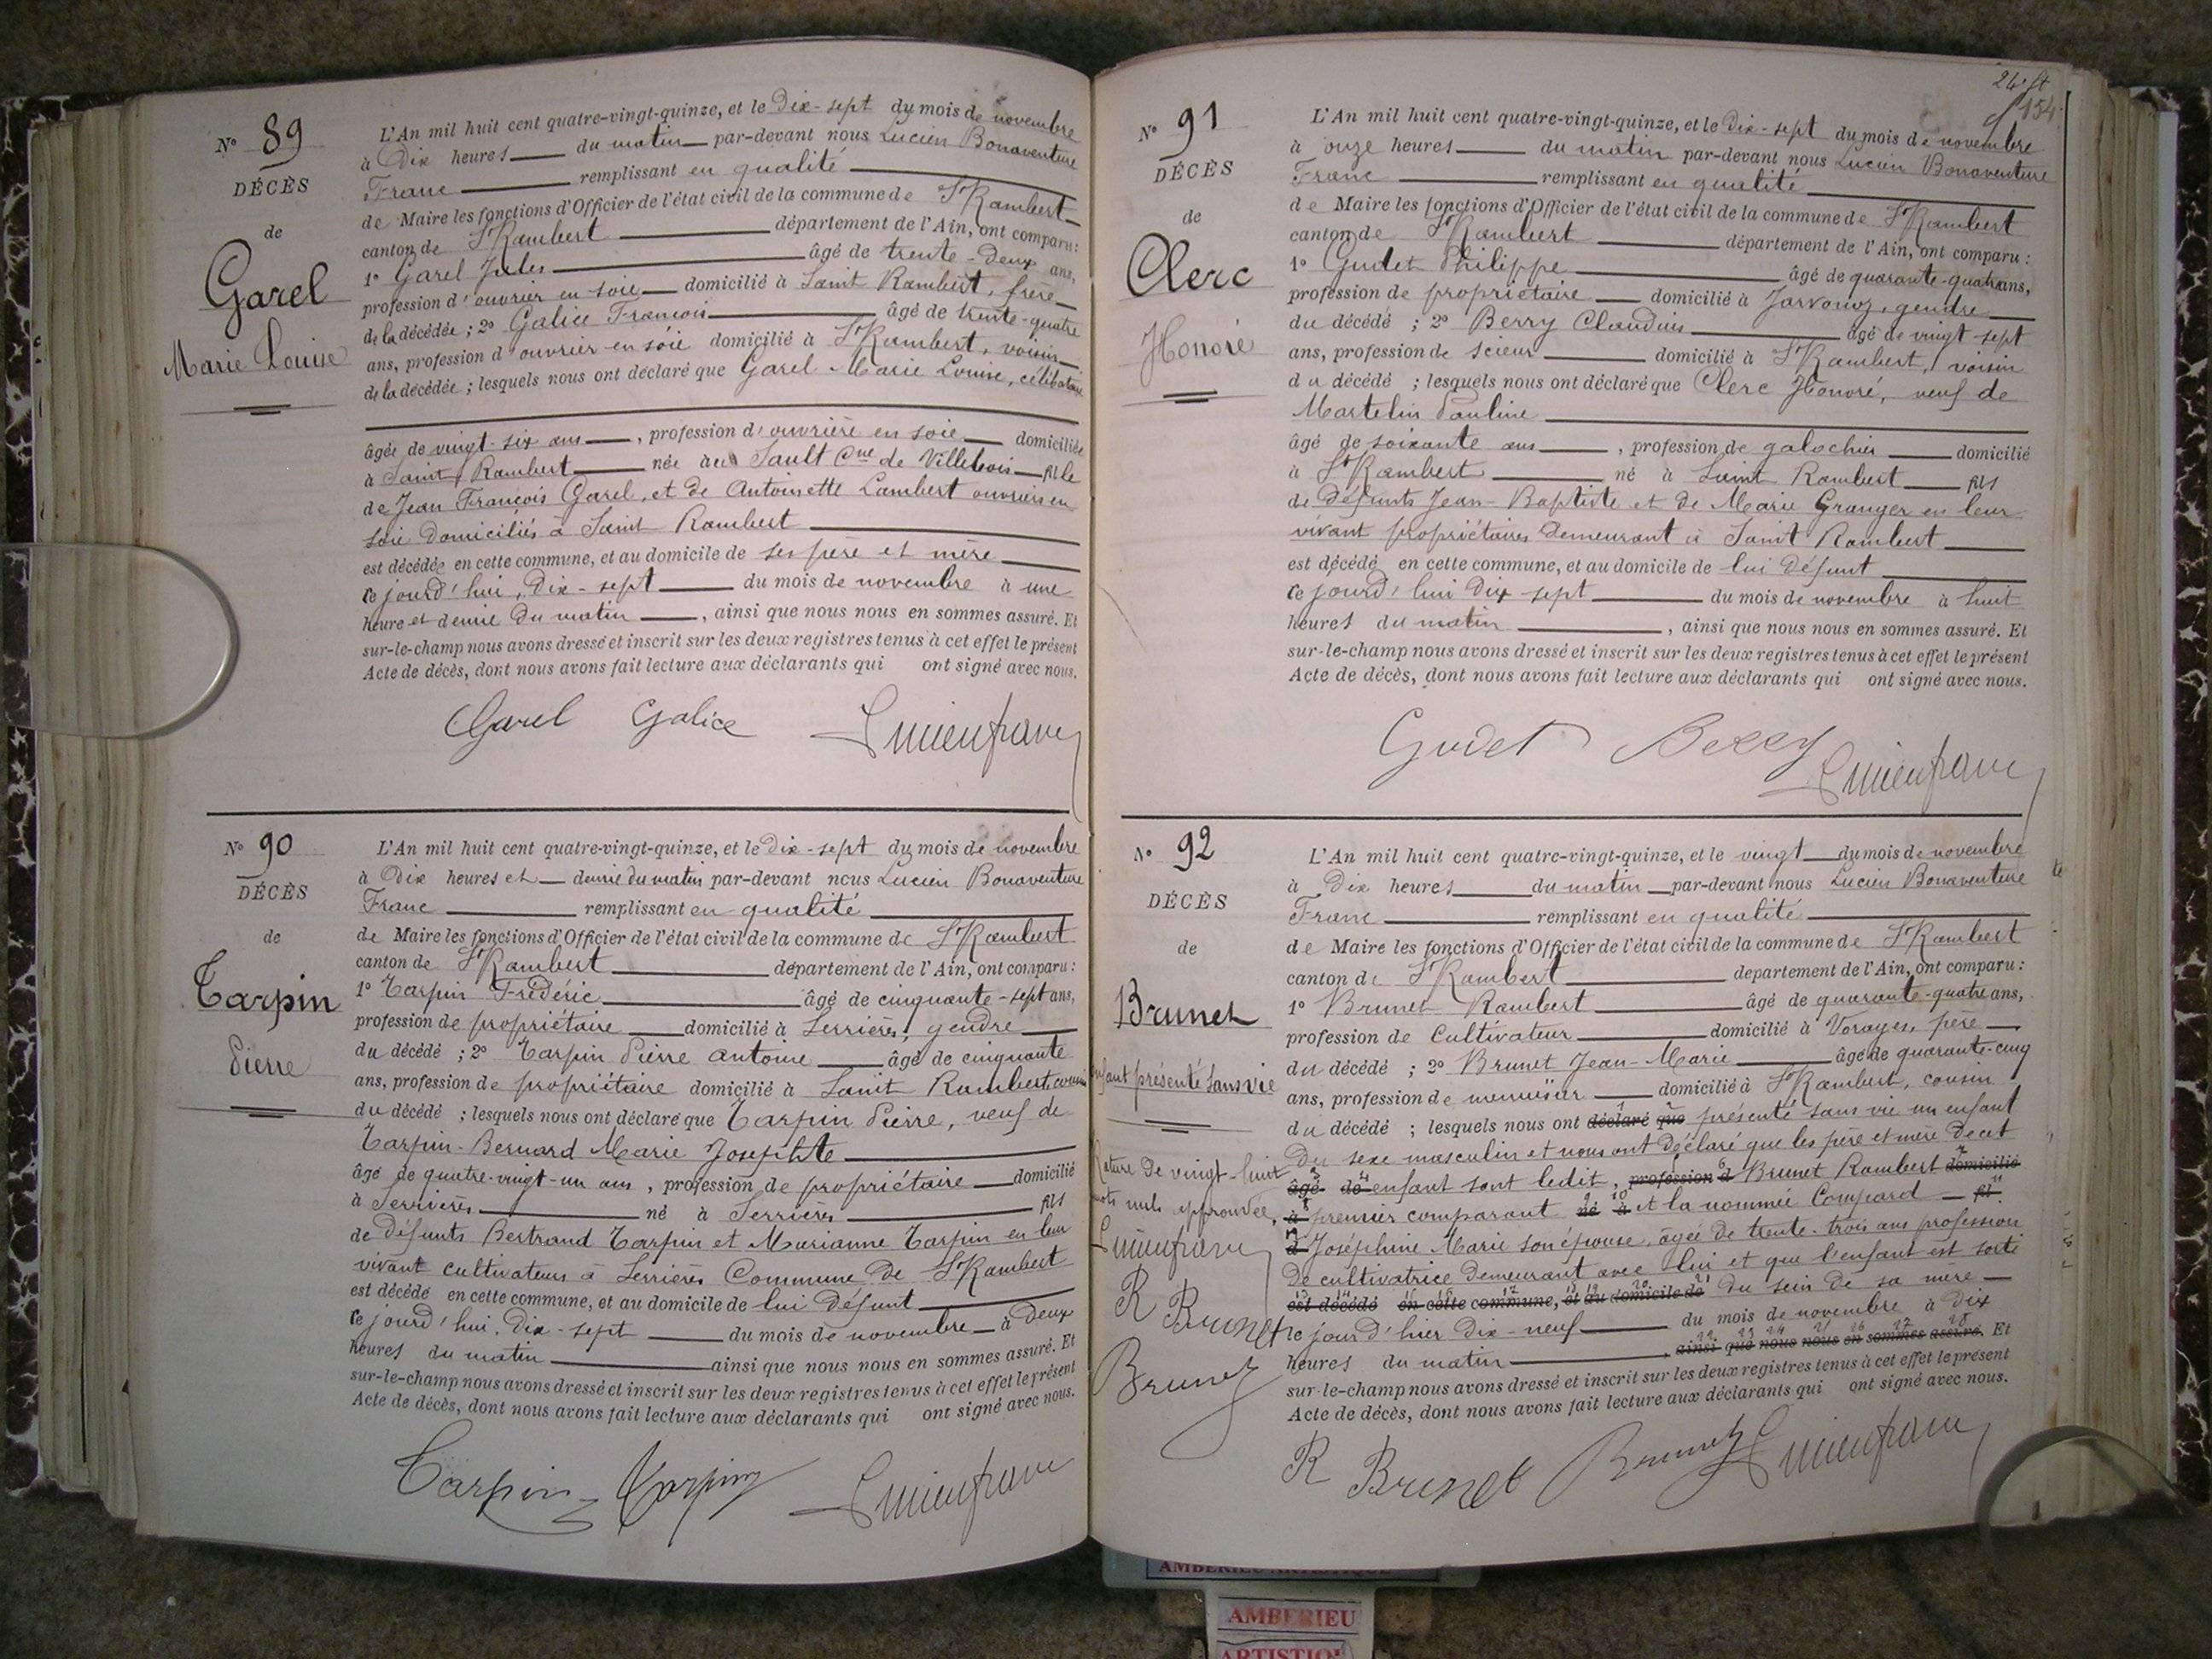 N° 89
DÉCÈS
de
Garel
Marie Louise
L'An mil huit cent quatre-vingt-quinze, et le Dix-sept du mois de novembre
à Dix heures du matin par-devant nous Lucien Bonaventure
Franc remplissant en qualité
de Maire les fonctions d'Officier de l'état civil de la commune de St Rambert
canton de St Rambert département de l'Ain, ont comparu :
1° Garel Jules âgé de trente-deux ans,
profession d'ouvrier en soie domicilié à Saint Rambert, frère
de la décédée ; 2° Galice François âgé de trente-quatre
ans, profession d'ouvrier en soie domicilié à St Rambert, voisin
de la décédée ; lesquels nous ont déclaré que Garel Marie Louise, célibataire
âgée de vingt-six ans, profession d'ouvrière en soie domiciliée
à Saint Rambert née au Sault Cne de Villebois fille
de Jean François Garel, et de Antoinette Lambert ouvriers en
soie domiciliés à Saint Rambert
est décédée en cette commune, et au domicile de ses père et mère
ce jourd'hui, Dix-sept du mois de novembre à une
heure et demie du matin, ainsi que nous nous en sommes assuré. Et
sur-le-champ nous avons dressé et inscrit sur les deux registres tenus à cet effet le présent
Acte de décès, dont nous avons fait lecture aux déclarants qui ont signé avec nous.
Garel Galice Lucien franc
N° 90
DÉCÈS
de
Tarpin
Pierre
L'An mil huit cent quatre-vingt-quinze, et le Dix-sept du mois de novembre
à Dix heures et demie du matin par-devant nous Lucien Bonaventure
Franc remplissant en qualité
de Maire les fonctions d'Officier de l'état civil de la commune de St Rambert
canton de St Rambert département de l'Ain, ont comparu :
1° Tarpin Frédéric âgé de cinquante-sept ans,
profession de propriétaire domicilié à Serrières, gendre
du décédé ; 2° Tarpin Pierre Antoine âgé de cinquante
ans, profession de propriétaire domicilié à Saint Rambert, cousin
du décédé ; lesquels nous ont déclaré que Tarpin Pierre, veuf de
Tarpin-Bernard Marie Josephte
âgé de quatre-vingt-un ans, profession de propriétaire domicilié
à Serrières né à Serrières fils
de défunts Bertrand Tarpin et Marianne Tarpin en leur
vivant cultivateurs à Serrières Commune de St Rambert
est décédé en cette commune, et au domicile de lui défunt
ce jourd'hui, Dix-sept du mois de novembre à deux
heures du matin ainsi que nous nous en sommes assuré. Et
sur-le-champ nous avons dressé et inscrit sur les deux registres tenus à cet effet le présent
Acte de décès, dont nous avons fait lecture aux déclarants qui ont signé avec nous.
Tarpin Tarpin Lucien franc
154
N° 91
DÉCÈS
de
Clerc
Honoré
L'An mil huit cent quatre-vingt-quinze, et le Dix-sept du mois de novembre
à onze heures du matin par-devant nous Lucien Bonaventure
Franc remplissant en qualité
de Maire les fonctions d'Officier de l'état civil de la commune de St Rambert
canton de St Rambert département de l'Ain, ont comparu :
1° Gudet Philippe âgé de quarante-quatre ans,
profession de propriétaire domicilié à Javornoz, gendre
du décédé ; 2° Berry Claudius âgé de vingt-sept
ans, profession de scieur domicilié à St Rambert, voisin
du décédé ; lesquels nous ont déclaré que Clerc Honoré, veuf de
Martelin Pauline
âgé de soixante ans, profession de galochier domicilié
à St Rambert né à Saint Rambert fils
de défunts Jean-Baptiste et de Marie Granger en leur
vivant propriétaires demeurant à Saint Rambert
est décédé en cette commune, et au domicile de lui défunt
ce jourd'hui Dix-sept du mois de novembre à huit
heures du matin, ainsi que nous nous en sommes assuré. Et
sur-le-champ nous avons dressé et inscrit sur les deux registres tenus à cet effet le présent
Acte de décès, dont nous avons fait lecture aux déclarants qui ont signé avec nous.
Gudet Berry Lucien franc
N° 92
DÉCÈS
de
Brunet
enfant présenté sans vie
Rature de vingt-huit
mots nuls approuvée,
Lucien franc
R Brunet
Brunet
L'An mil huit cent quatre-vingt-quinze, et le vingt du mois de novembre
à Dix heures du matin par-devant nous Lucien Bonaventure
Franc remplissant en qualité
de Maire les fonctions d'Officier de l'état civil de la commune de St Rambert
canton de St Rambert département de l'Ain, ont comparu :
1° Brunet Rambert âgé de quarante-quatre ans,
profession de Cultivateur domicilié à Vorages, père
du décédé ; 2° Brunet Jean-Marie âgé de quarante-cinq
ans, profession de menuisier domicilié à St Rambert, cousin
du décédé ; lesquels nous ont déclaré que présenté sans vie un enfant
du sexe masculin et nous ont déclaré que les père et mère de cet
âgé de enfant sont ledit, profession d Brunet Rambert domicilié
à premier comparant né à et la nommée Compard fil
d Joséphine Marie son épouse, âgée de trente-trois ans profession
de cultivatrice demeurant avec lui et que l'enfant est sorti
est décédé en cette commune, et au domicile de du sein de sa mère
ce jour d'hier Dix-neuf du mois de novembre à Dix
heures du matin, ainsi que nous nous en sommes assuré. Et
sur-le-champ nous avons dressé et inscrit sur les deux registres tenus à cet effet le présent
Acte de décès, dont nous avons fait lecture aux déclarants qui ont signé avec nous.
R Brunet Brunet Lucien franc
AMBERIEU ARTISTIQUE
AMBERIEU